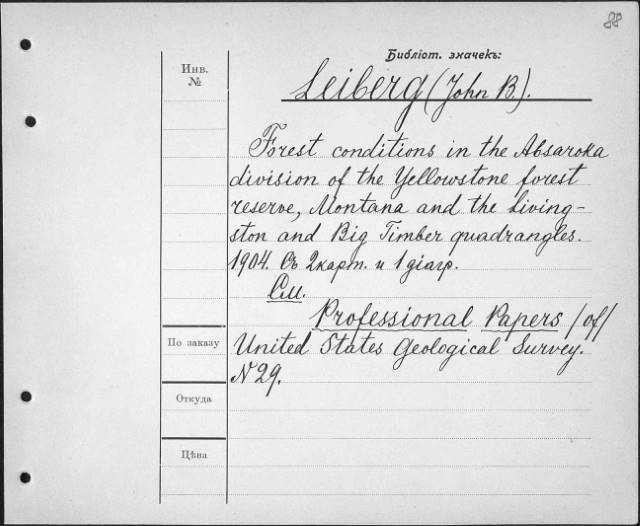 88
Библіот. значекъ:
Инв.
№
Leiberg (John B.).
Forest conditions in the Absaroka
division of the Yellowstone forest
reserve, Montana and the Living-
ston and Big Timber quadrangles.
1904. Съ 2 карт. и 1 діагр.
См.
Professional Papers /of/
По заказу
United States Geological Survey.
N 29.
Откуда
Цѣна